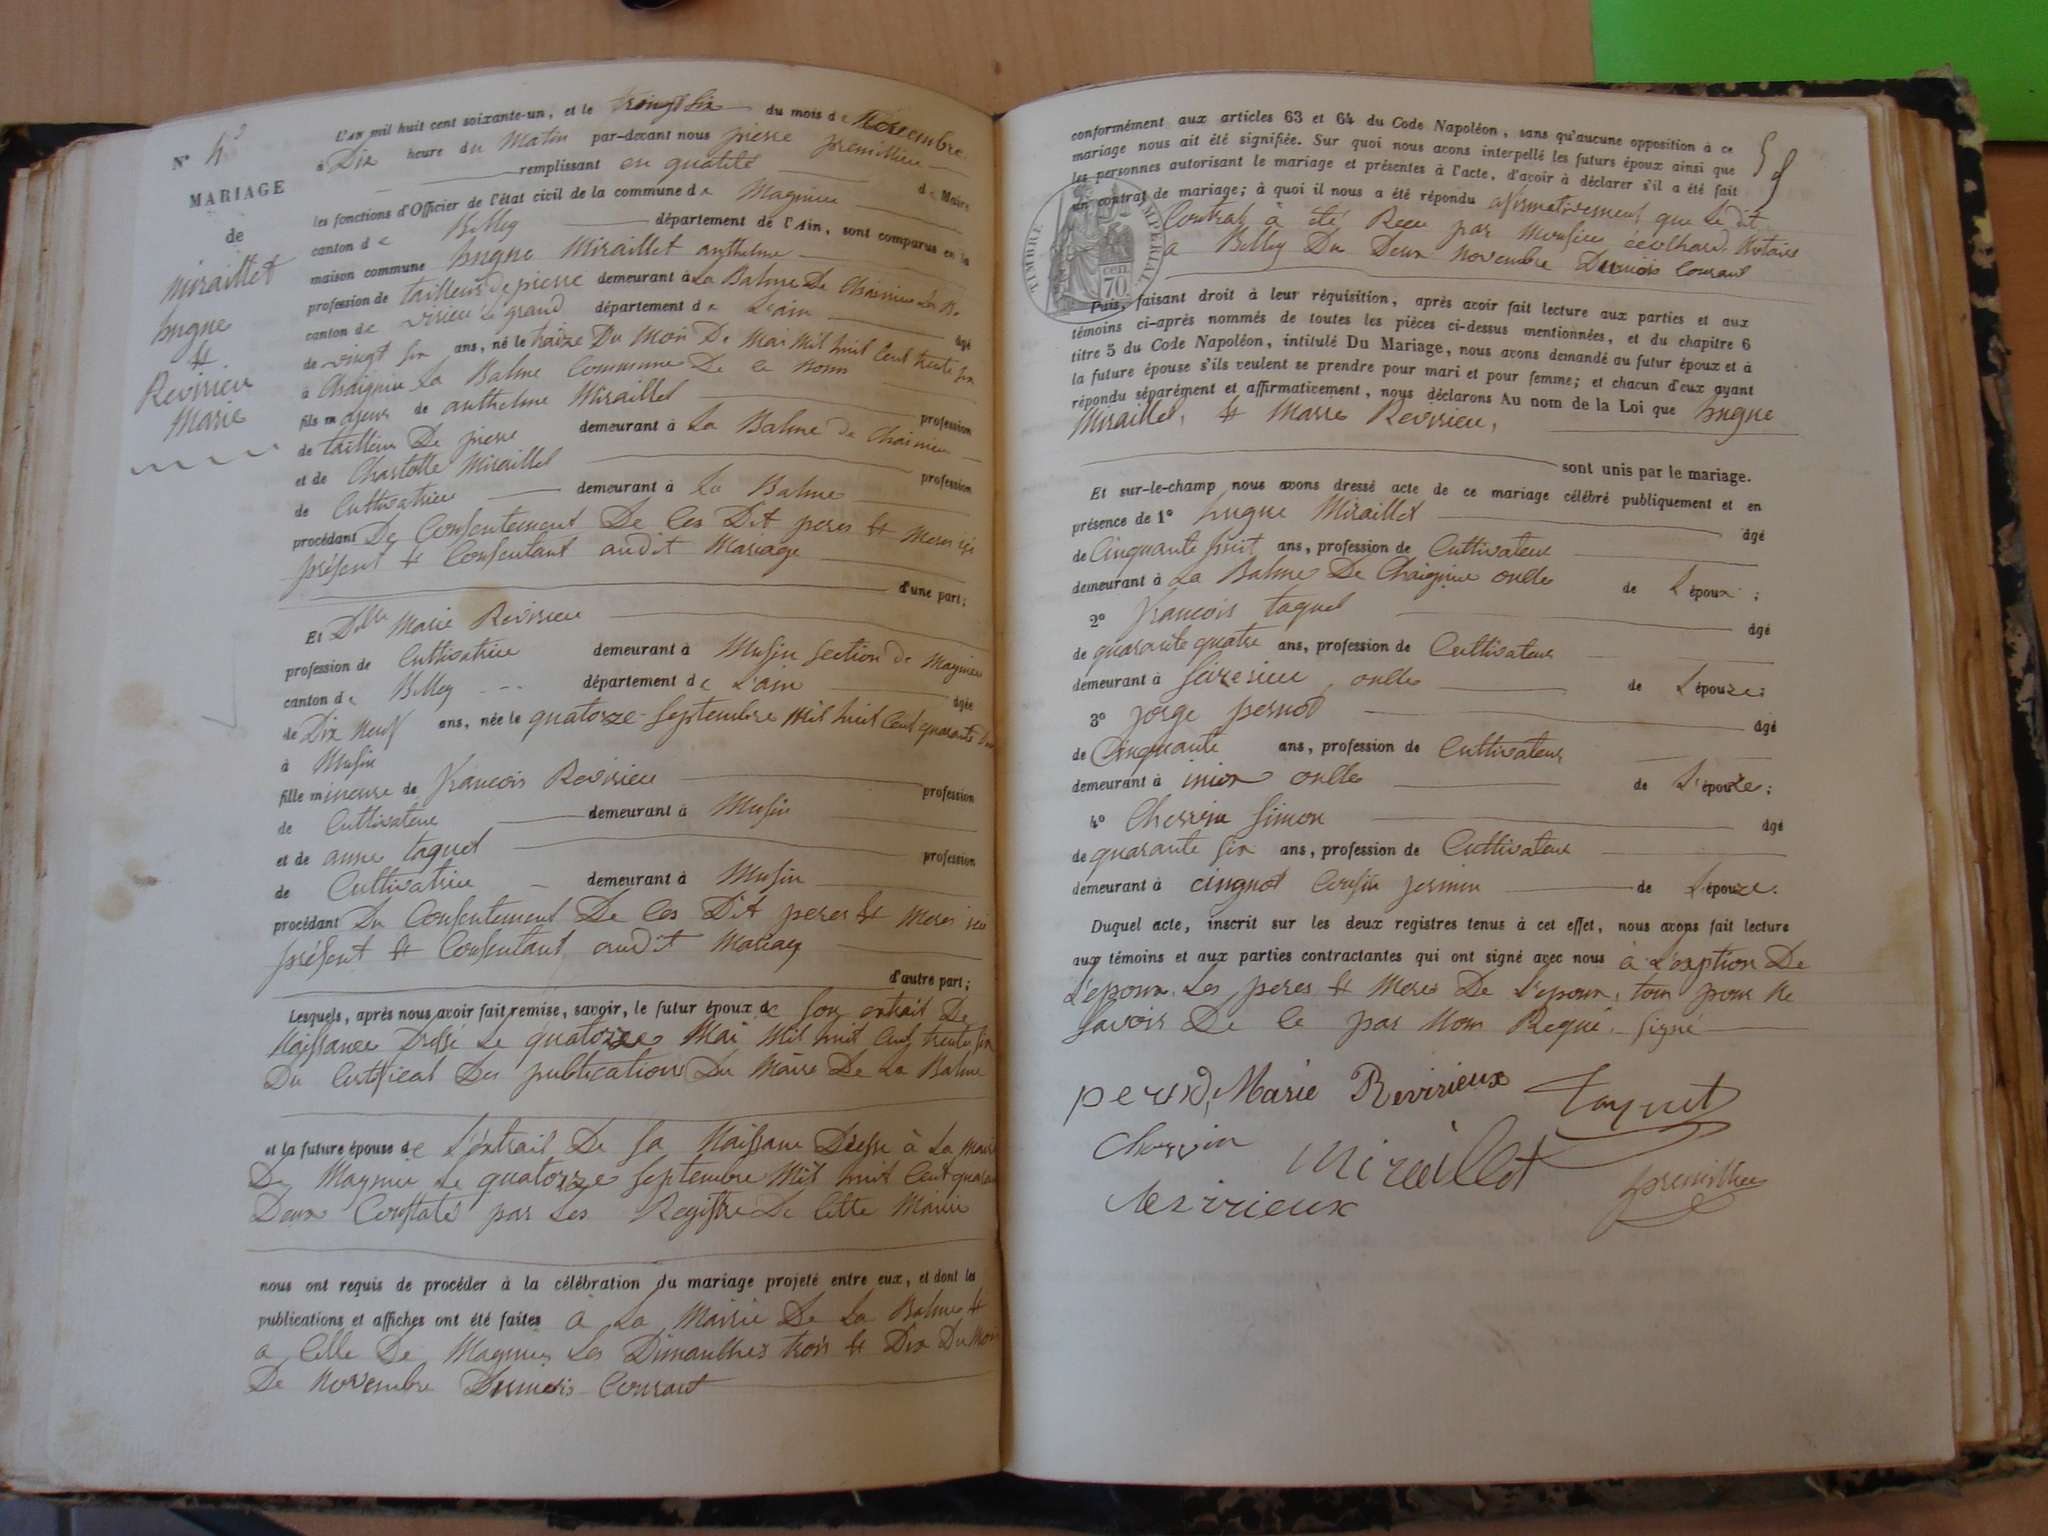 L'AN mil huit cent soixante-un, et le vingt six du mois de Novembre
à Dix heure du Matin par-devant nous pierre premillieu
remplissant en qualité de Maire
les fonctions d'Officier de l'état civil de la commune de Magnieu
canton de Belley département de l'Ain, sont comparus en la
maison commune hugue Miraillet anthelme
profession de tailleur de pierre demeurant à La Balme De
canton de virieu le grand département de L'ain âgé
de vingt six ans, né le traize Du Mois De Mai Mil huit Cent trente six
à La Balme Commune De ce Nom
fils majeur de anthelme Miraillet profession
de tailleur De pierre demeurant à La Balme de
et de Charlotte Miraillet profession
de Cultivatrice demeurant à La Balme
procédant Du Consentement De Ces Dit peres & Meres ici
présent & Consentant audit Mariage
d'une part;
Et Dlle Marie Revirieu
profession de Cultivatrice demeurant à Musin Section de Magnieu
canton de Belley département de L'ain âgée
de Dix Neuf ans, née le quatorze Septembre Mil huit Cent quarante Deux
à Musin
fille mineure de françois Revirieu profession
de Cultivateur demeurant à Musin
et de anne taquet profession
de Cultivatrice demeurant à Musin
procédant Du Consentement De Ces Dit peres & Meres ici
présent & Consentant audit Mariage
d'autre part;
Lesquels, après nous avoir fait remise, savoir, le futur époux de Son extrait De
Naissance Dressé Le quatorze Mai Mil huit Cent trente six
Du Certificat Des publications Du Maire De La Balme
et la future épouse de L'extrait De Sa Naissance Dresse à La Mairie
De Magnieu Le quatorze Septembre Mil huit Cent quarante
Deux Constaté par Les Registre De Cette Mairie
nous ont requis de procéder à la célébration du mariage projeté entre eux, et dont les
publications et affiches ont été faites à La Mairie De La Balme &
a Celle De Magnieu Les Dimanches trois & Dix Du Mois
De Novembre Dumois Courant
N° 43
MARIAGE
de
Miraillet
hugue
&
Revirieu
Marie
conformément aux articles 63 et 64 du Code Napoléon, sans qu'aucune opposition à ce
mariage nous ait été signifiée. Sur quoi nous avons interpellé les futurs époux ainsi que
les personnes autorisant le mariage et présentes à l'acte, d'avoir à déclarer s'il a été fait
un contrat de mariage; à quoi il nous a été répondu afirmativement que Le dit
Contrat à été Recu par Monsieu Notaire
a Belley Du Deux Novembre Dumois Courant
TIMBRE IMPÉRIAL
70 cen
Puis, faisant droit à leur réquisition, après avoir fait lecture aux parties et aux
témoins ci-après nommés de toutes les pièces ci-dessus mentionnées, et du chapitre 6
titre 5 du Code Napoléon, intitulé Du Mariage, nous avons demandé au futur époux et à
la future épouse s'ils veulent se prendre pour mari et pour femme; et chacun d'eux ayant
répondu séparément et affirmativement, nous déclarons Au nom de la Loi que hugue
Miraillet, & Marie Revirieu,
sont unis par le mariage.
Et sur-le-champ nous avons dressé acte de ce mariage célébré publiquement et en
présence de 1° hugue Miraillet âgé
de Cinquante huit ans, profession de Cultivateur
demeurant à La Balme De oncle de L'époux;
2° françois taquet âgé
de quarante quatre ans, profession de Cultivateur
demeurant à oncle de L'épouze;
3° jorge pernod âgé
de Cinquante ans, profession de Cultivateur
demeurant à oncle de L'épouze;
4° Chervin Simon âgé
de quarante six ans, profession de Cultivateur
demeurant à Cousin jermin de L'épouze.
Duquel acte, inscrit sur les deux registres tenus à cet effet, nous avons fait lecture
aux témoins et aux parties contractantes qui ont signé avec nous à L'exption De
L'epoux Les peres & Meres De L'epoux, tous pour Ne
Savoir De Ce par Nous Requi Signé
pernod, Marie Revirieux Taquet
Chervin Miraillet premillieu
Revirieux